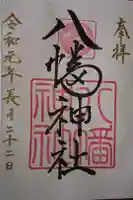 奉拝
八幡神社
令和元年長月二十二日
八幡
神社